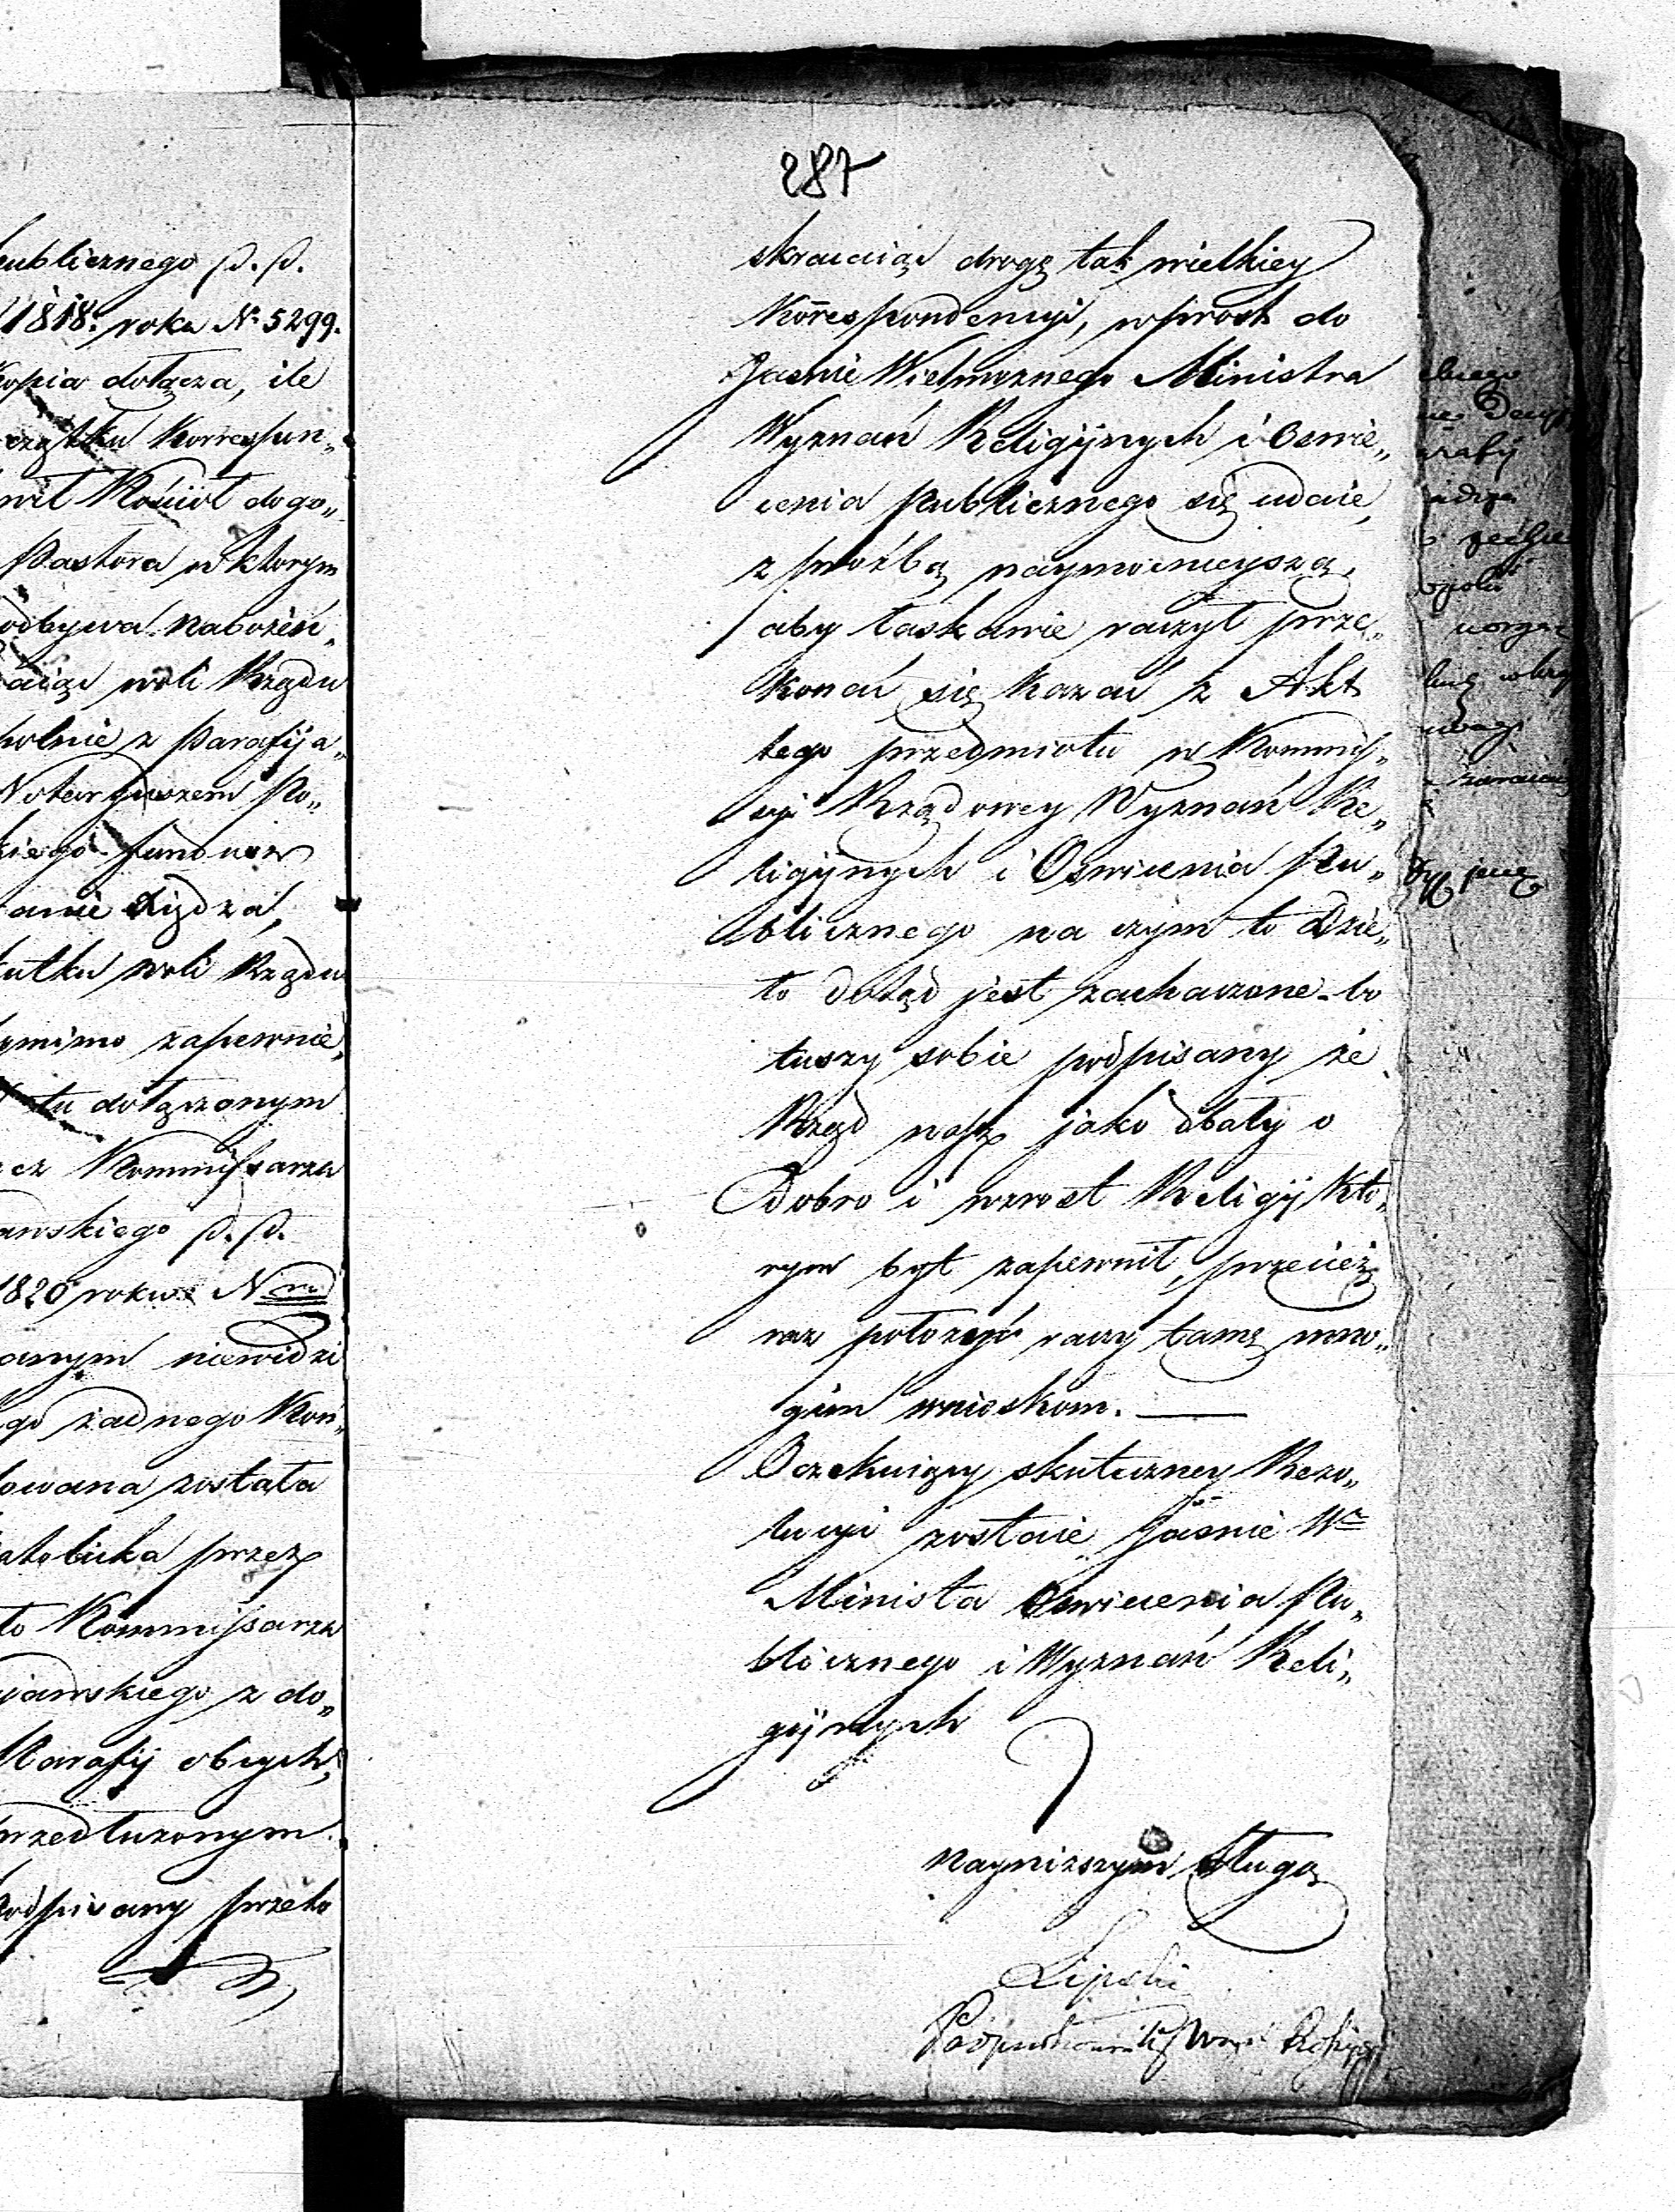 ublicznego p. p.
1818. roku No 5299.
kopia dołącza, ile
czątku Korrespon„
wił Kościoł dogo„
Pastora w ktorym
odbywa Naboźeń„
aiąc woli Rządu
polnie z Parafija„
Notaryuszem Po„
kiego funduszow
anie Xiędza,
utku woli Rządu
ymimo zapewnie,
tu dołączonym
ez Kommissarza
awskiego p. p.
1820 roku Nrm
anym niewidzi
go żadnego Kon„
owana została
atolicka przez
to Kommissarza
jawskiego z do„
Parafij obcych,
przedłużonym.
Podpisany przeto
287
skracaiąc drogę tak wielkiey
Korrespondencyi, wprost do
Jasnie Wielmoznego Ministra
Wyznań Religijnych i Oswie„
cenia Publicznego się udaie,
z proźbą naymocnieyszą,
aby łaskawie raczył prze„
konać się kazać z Akt
tego przedmiotu w Kommis„
syi Rządowey Wyznań Re„
ligijnych i Oswiecenia Pu„
blicznego na czym to dzie„
ło dotąd jest zachaczone - bo
tuszy sobie podpisany że
Rząd nasz jako dbały o
Dobro i wzrost Religij kto„
rym byt zapewnił, przecież
raz położyć raczy tamę mno„
gim wnioskom. —
Oczekuiący skuteczney Rezo„
lucyi zostaie Jasnie We
Ministra Oswiecenia Pu„
blicznego i Wyznań Reli„
gijnych
naynizszym sługą
Lipski
uwagi